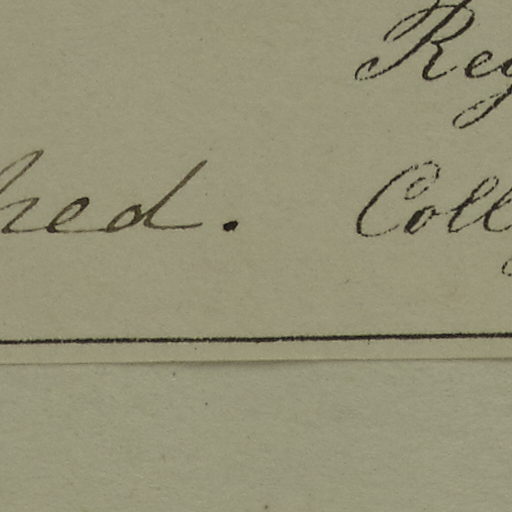 Reg
hed. Coll